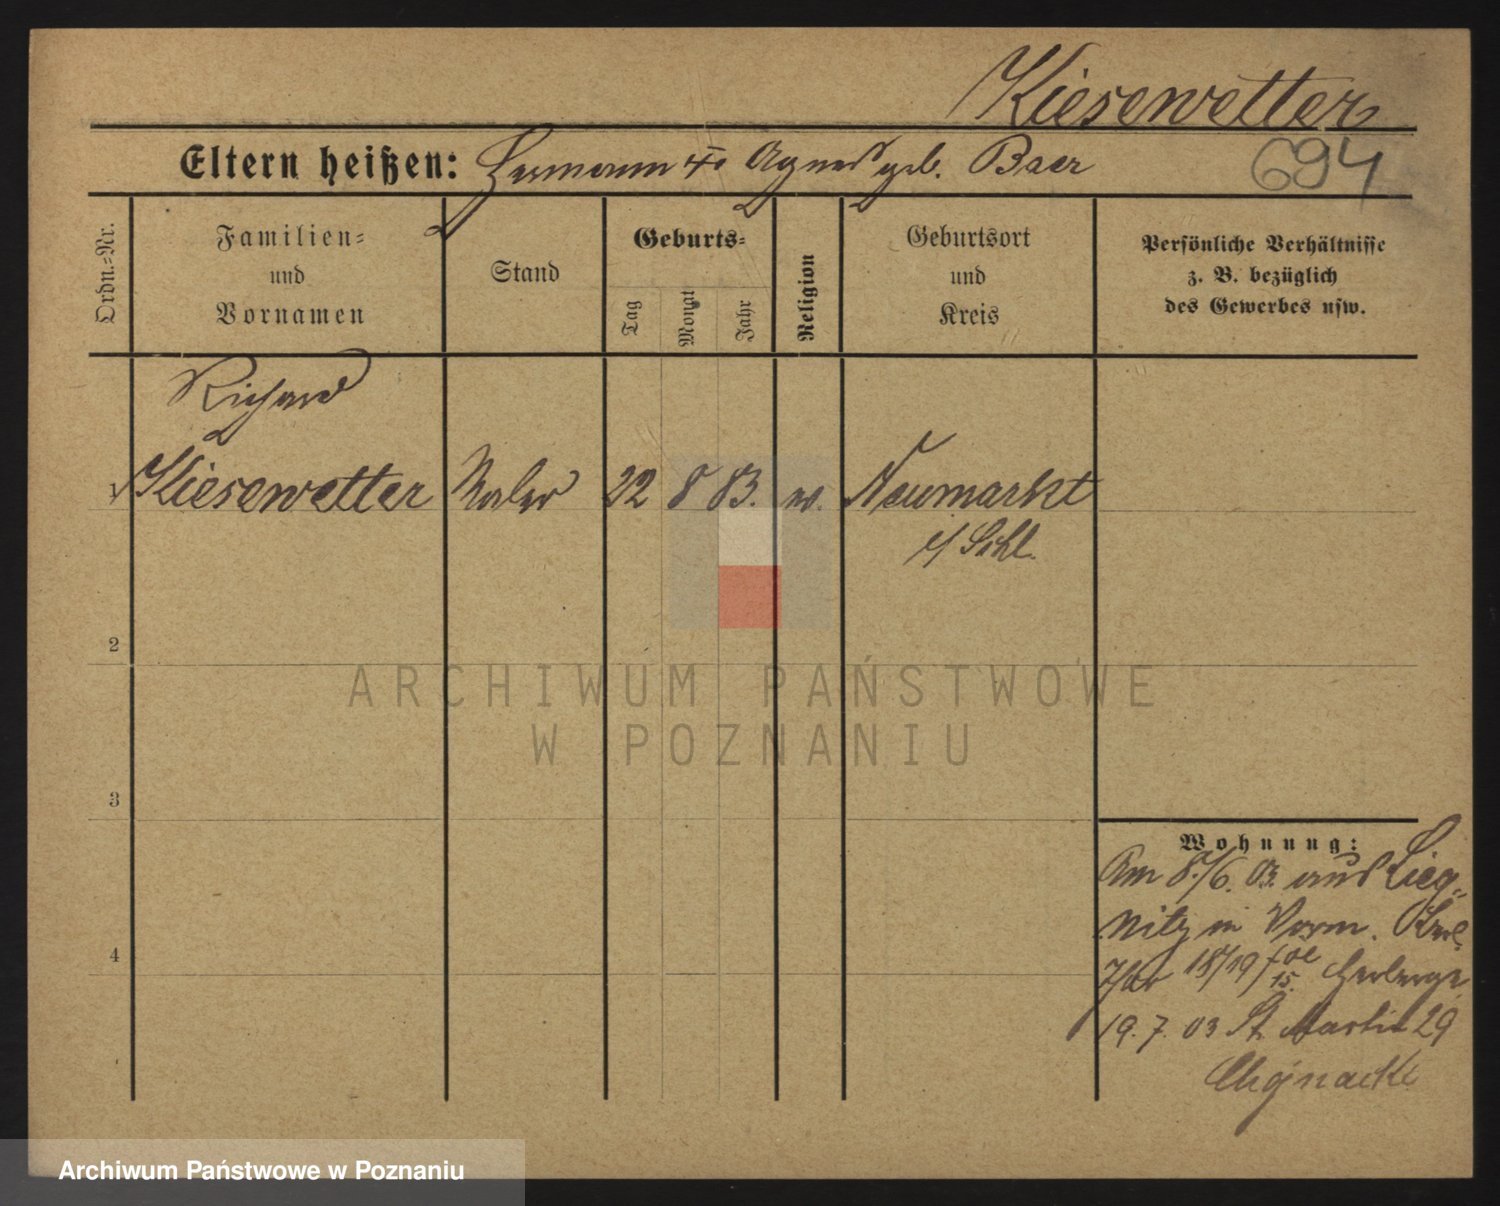 Kiesewetter
Eltern heißen: Hermann & Agnes geb. Baer
694
Ordn.-Nr.
Familien-
und
Vornamen
Stand
Geburts-
Tag
Monat
Jahr
Religion
Geburtsort
und
Kreis
Persönliche Verhältnisse
z. B. bezüglich
des Gewerbes usw.
Richard
1 Kiesewetter Maler 22 8 83. ev. Neumarkt
i/ Schl.
2
3
4
Wohnung:
Am 8./6. 03. aus Lieg-
nitz in Vorm.
18/19 15. Herberge
19. 7. 03 St. Martin 29
Chojnacki
ARCHIWUM PAŃSTWOWE
W POZNANIU
Archiwum Państwowe w Poznaniu